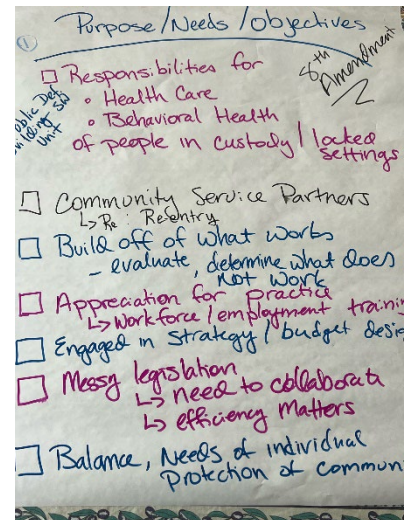 ① Purpose/Needs/objectives
8th Amendment
□ Responsibilities for
• Health Care
• Behavioral Health
of people in custody/locked settings
Unit
□ Community Service Partners
↳ Re: Reentry
□ Build off of what works
- evaluate, determine what does not work
□ Appreciation for practice
↳ Workforce/employment trainin
□ Engaged in strategy/budget desi
□ Messy legislation
↳ need to collaborate
↳ efficiency matters
□ Balance, Needs of individual
Protection of commun